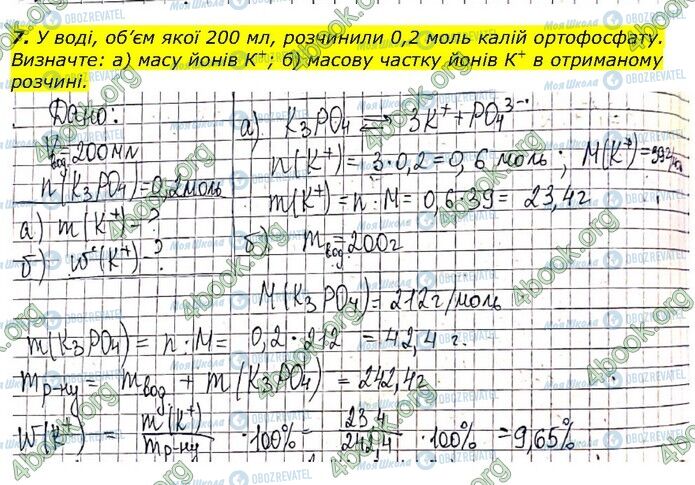 7. У воді, об’єм якої 200 мл, розчинили 0,2 моль калій ортофосфату.
Визначте: а) масу йонів K⁺; б) масову частку йонів K⁺ в отриманому
розчині.
Дано:
V вод = 200 мл
n(K₃PO₄) = 0,2 моль
а) m(K⁺) - ?
б) W(K⁺) - ?
а). K₃PO₄ ⇄ 3K⁺ + PO₄³⁻
n(K⁺) = 3·0,2 = 0,6 моль; M(K⁺) =
m(K⁺) = n : M = 0,6·39 = 23,4 г
б) m вод = 200 г
M(K₃PO₄) = 212 г/моль
m(K₃PO₄) = n : M = 0,2 · 212 = 42,4 г.
m р-ну = m вод + m(K₃PO₄) = 242,4 г
W(K⁺) = m(K⁺) / m р-ну · 100% = 23,4 / 242,4 · 100% = 9,65%
4book.org
Моя Школа
OBOZREVATEL